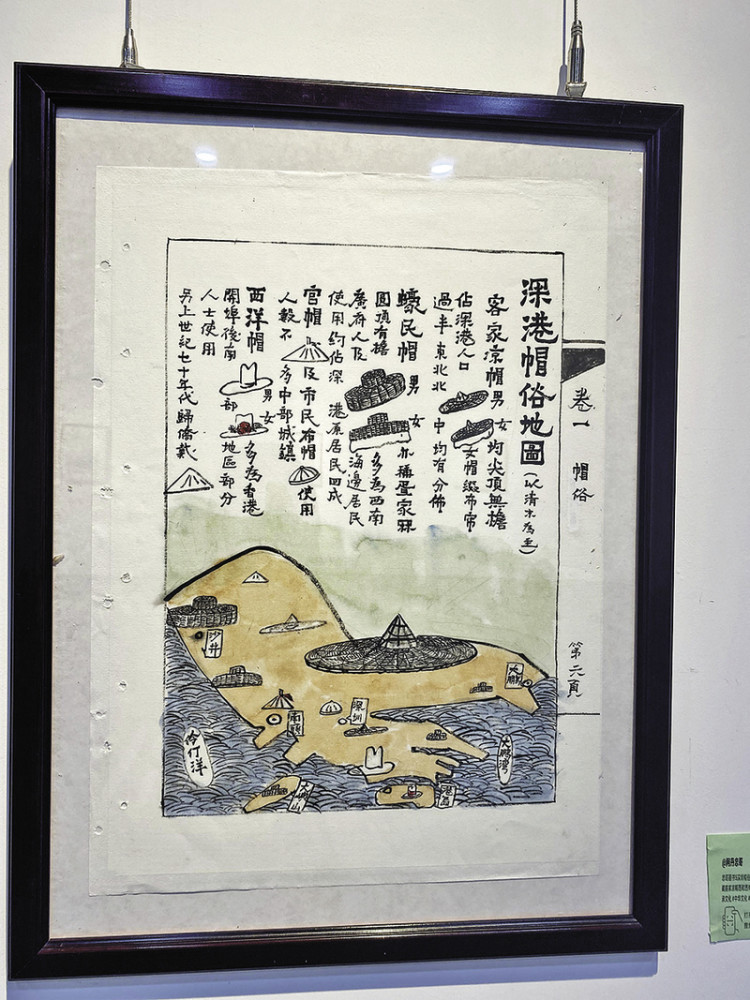 卷一 帽俗
深港帽俗地圖(以清末為主)
客家涼帽男女均尖頂無檐
佔深港人口 女帽綴布帘
過半 東北北中均有分佈
蠔民帽 男女 亦稱蛋家
圓頂有檐 多為西南
廣府人及 海邊居民
使用約佔深港原居民四成
官帽 及市民布帽 使用
人數不多中部城鎮
西洋帽 男女 多為香港
開埠後南部地區部分
人士使用
另上世紀七十年代歸僑戴
沙井
大鵬
深圳
南頭
伶仃洋
大鵬灣
大嶼山
港島